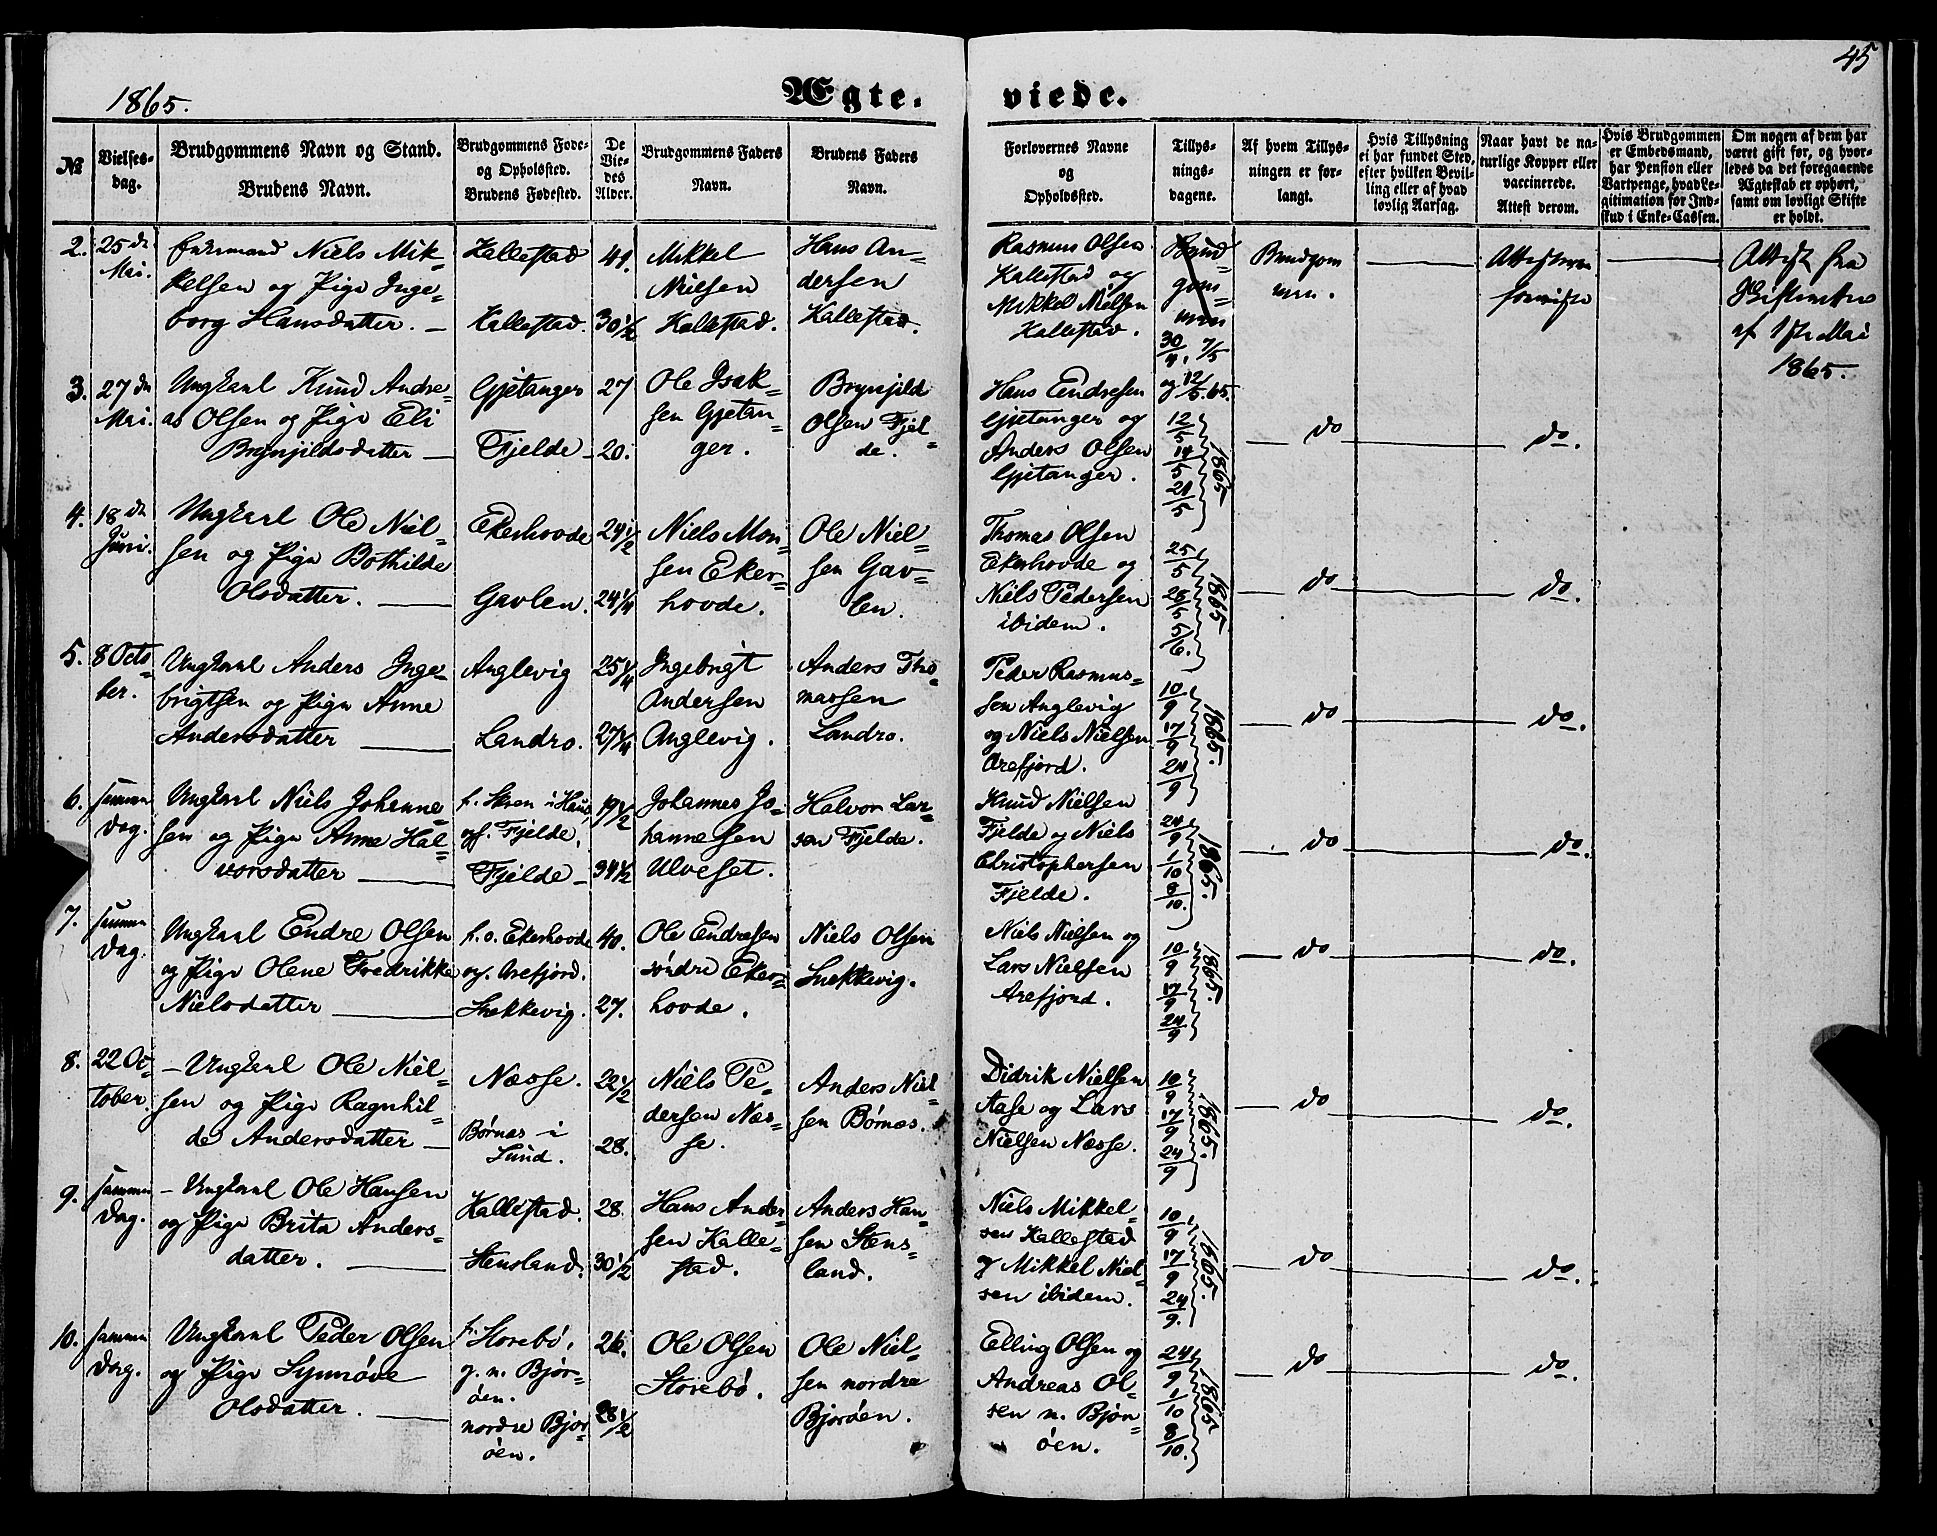 45
1865.
Ægte- viede.
№
Vielses-
dag.
Brudgommens Navn og Stand.
Brudens Navn.
Brudgommens Føde-
og Opholdsted.
Brudens Fødested.
De
Vie-
des
Alder.
Brudgommens Faders
Navn.
Brudens Faders
Navn.
Forlovernes Navne
og
Opholdssted.
Tillys-
nings-
dagene.
Af hvem Tillys-
ningen er for-
langt.
Hvis Tillysning
ei har fundet Sted,
efter hvilken Bevil-
ling eller af hvad
lovlig Aarsag.
Naar havt de na-
turlige Kopper eller
vaccinerede.
Attest derom.
Hvis Brudgommen
er Embedsmand,
har Pension eller
Vartpenge, hvad Le-
gitimation for Ind-
skud i Enke-Cassen.
Om nogen af dem har
været gift før, og hvor-
ledes da det foregaaende
Ægteskab er ophørt,
samt om lovligt Skifte
er holdt.
2.
25 de
Mai.
Enkemand Niels Mik-
kelsen og Pige Inge-
borg Hansdatter.
Kallestad
Kallestad.
41.
30 1/2
Mikkel
Nielsen
Kallestad.
Hans An-
dersen
Kallestad.
Rasmus Olsen
Kallestad og
Mikkel Nielsen
Kallestad.
Brud-
gom-
men
30/4, 7/5
og 12/5.65.
Brudgom
men.
Attest fra
af 1ste Mai
1865.
3.
27 de
Mai.
Ungkarl Knud Andre-
as Olsen og Pige Eli
Brynjildsdatter
Gjetanger
Fjelde
27
20.
Ole Isak-
sen Gjetan-
ger.
Brynjild
Olsen Fjel-
de.
Hans Endresen
Gjetanger og
Anders Olsen
Gjetanger.
12/5
14/5
21/5
1865
do
do.
4.
18 de
Juni.
Ungkarl Ole Niel-
sen og Pige Bothilde
Olsdatter.
Ekerhovde
Gavlen.
24 1/2
24 1/4
Niels Mon-
sen Eker-
hovde.
Ole Niel-
sen Gav-
len.
Thomas Olsen
Ekerhovde og
Niels Pedersen
ibidem.
25/5
28/5
5/6.
1865
do
do.
5.
8 Octo-
ber.
Ungkarl Anders Inge-
brigtsen og Pige Anne
Andersdatter
Anglevig
Landro.
25 1/4
27 1/4
Ingebrigt
Andersen
Anglevig.
Anders Tho-
massen
Landro.
Peder Rasmus-
sen Anglevig
og Niels Nielsen
Arefjord.
10/9
17/9
24/9
1865.
do
do.
6.
samme
Dag.
Ungkarl Niels Johanne-
sen og Pige Anne Hal-
vorsdatter
f. Skren i Haus
og. Fjelde.
Fjelde
19 1/2
34 1/2
Johannes Jo-
hannesen
Ulveset.
Halvor Lar-
sen Fjelde.
Knud Nielsen
Fjelde og Niels
Christophersen
Fjelde.
24/9
1/10
8/10.
1865.
do
do.
7.
samme
Dag.
Ungkarl Endre Olsen
og Pige Olene Fredrikke
Nielsdatter
f. s. Ekerhovde
og. Arefjord.
Snekkevig.
40.
27.
Ole Endresen
søndre Eker-
hovde.
Niels Olsen
Snekkevig.
Niels Nielsen og
Lars Nielsen
Arefjord.
10/9
17/9
24/9
1865.
do
do.
8.
22 Oc-
tober.
Ungkarl Ole Niel-
sen og Pige Ragnhil-
de Andersdatter
Næsse.
Børnæs i
Sund.
22 1/2
28.
Niels Pe-
dersen Næs-
se.
Anders Niel-
sen Børnæs.
Didrik Nielsen
Aase og Lars
Nielsen Næsse.
10/9
17/9
24/9
1865.
do
do.
9.
samme
Dag.
Ungkarl Ole Hansen
og Pige Brita Anders-
datter.
Kallestad.
Stensland.
28
30 1/2
Hans Ander-
sen Kalle-
stad.
Anders Han-
sen Stens-
land.
Niels Mikkel-
sen Kallestad
og Mikkel Niel-
sen ibidem.
10/9
17/9
24/9.
1865.
do
do.
10.
samme
Dag.
Ungkarl Peder Olsen
og Pige Synnøve
Olsdatter.
f. Storebø.
g. n. Bjor-
öen.
nordre Bjor-
öen.
26.
28 1/2
Ole Olsen
Storebø.
Ole Niel-
sen nordre
Bjoröen.
Elling Olsen og
Andreas Ol-
sen n. Bjor-
öen.
24/9
1/10
8/10.
1865
do
do.